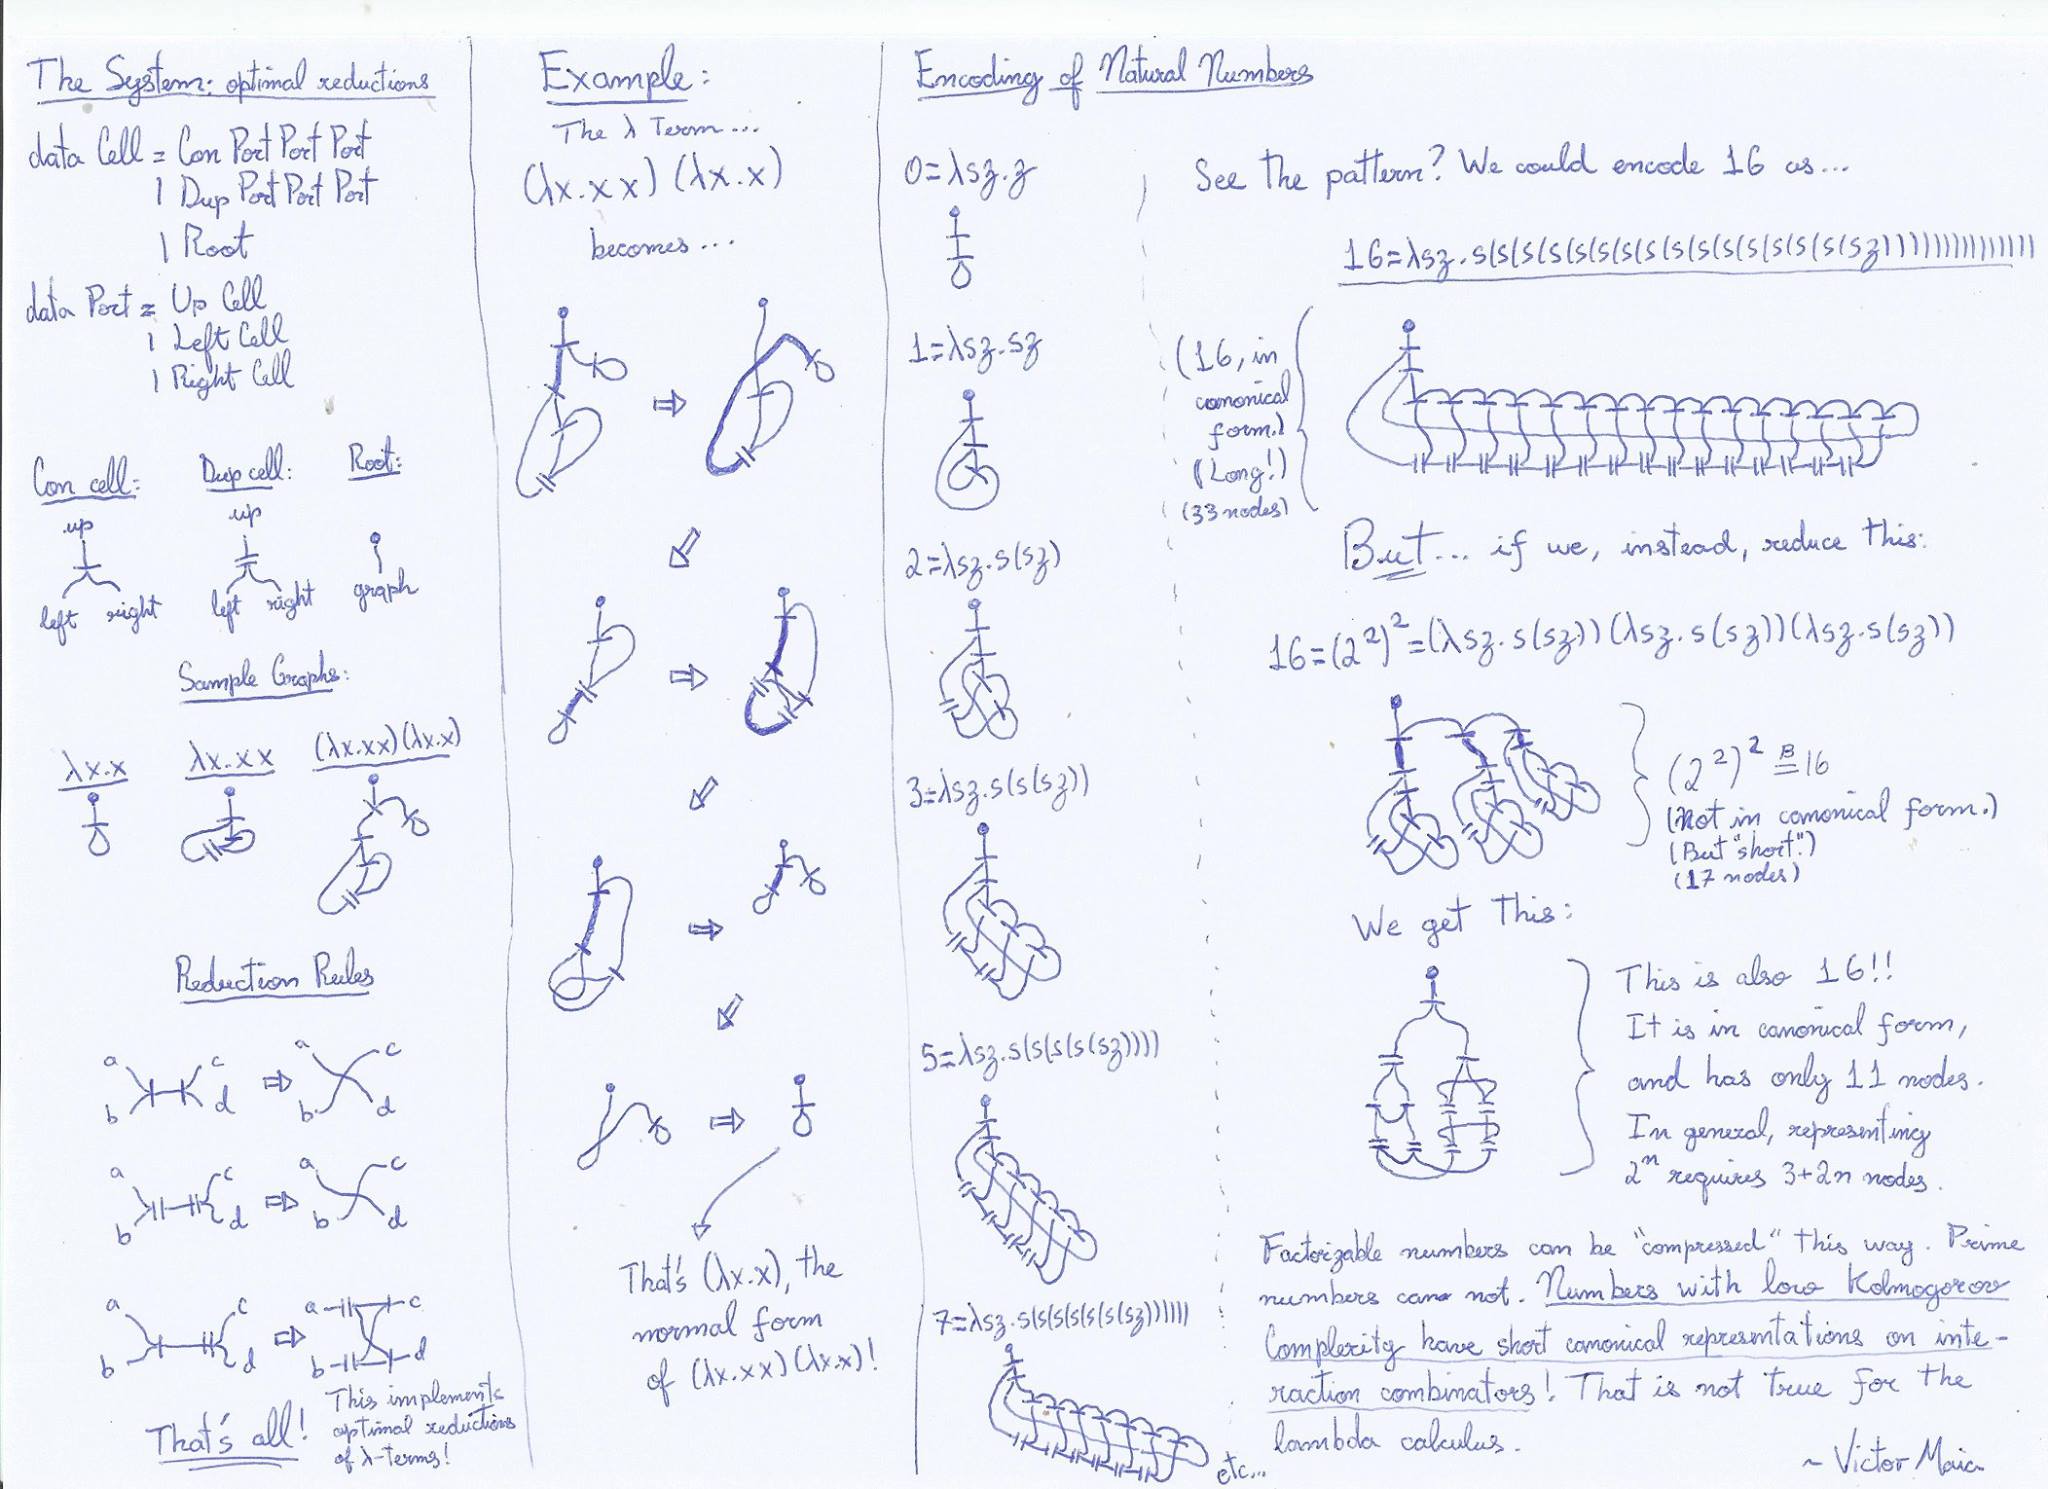 The System: optimal reductions
data Cell = Con Port Port Port
| Dup Port Port Port
| Root
data Port = Up Cell
| Left Cell
| Right Cell
Con cell:
Dup cell:
Root:
up
up
left right
left right
graph
Sample Graphs:
λx.x
λx.xx
(λx.xx)(λx.x)
Reduction Rules
a c
b d
⇒
a c
b d
a c
b d
⇒
a c
b d
a c
b d
⇒
a c
b d
That's all!
This implements
optimal reductions
of λ-terms!
Example:
The λ Term...
(λx.xx)(λx.x)
becomes...
That's (λx.x), the
normal form
of (λx.xx)(λx.x)!
Encoding of Natural Numbers
0=λsz.z
1=λsz.sz
2=λsz.s(sz)
3=λsz.s(s(sz))
5=λsz.s(s(s(s(sz))))
7=λsz.s(s(s(s(s(s(sz))))))
etc...
See the pattern? We could encode 16 as...
16=λsz.s(s(s(s(s(s(s(s(s(s(s(s(s(s(s(sz)))))))))))))))
(16, in
canonical
form.)
(Long!)
(33 nodes)
But... if we, instead, reduce this:
16=(2²)²=(λsz.s(sz))(λsz.s(sz))(λsz.s(sz))
(2²)² =ᴮ 16
(Not in canonical form.)
(But "short".)
(17 nodes)
We get This:
This is also 16!!
It is in canonical form,
and has only 11 nodes.
In general, representing
2ⁿ requires 3+2n nodes.
Factorizable numbers can be "compressed" this way. Prime
numbers can not. Numbers with low Kolmogorov
Complexity have short canonical representations on inte-
raction combinators! That is not true for the
lambda calculus.
~ Victor Maia